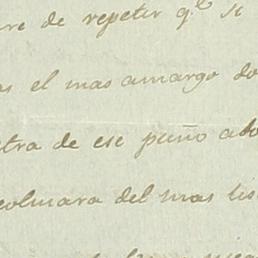 re de repetir q.e si
as el mas amargo do
tra de ese puño ado
colmara del mas lis